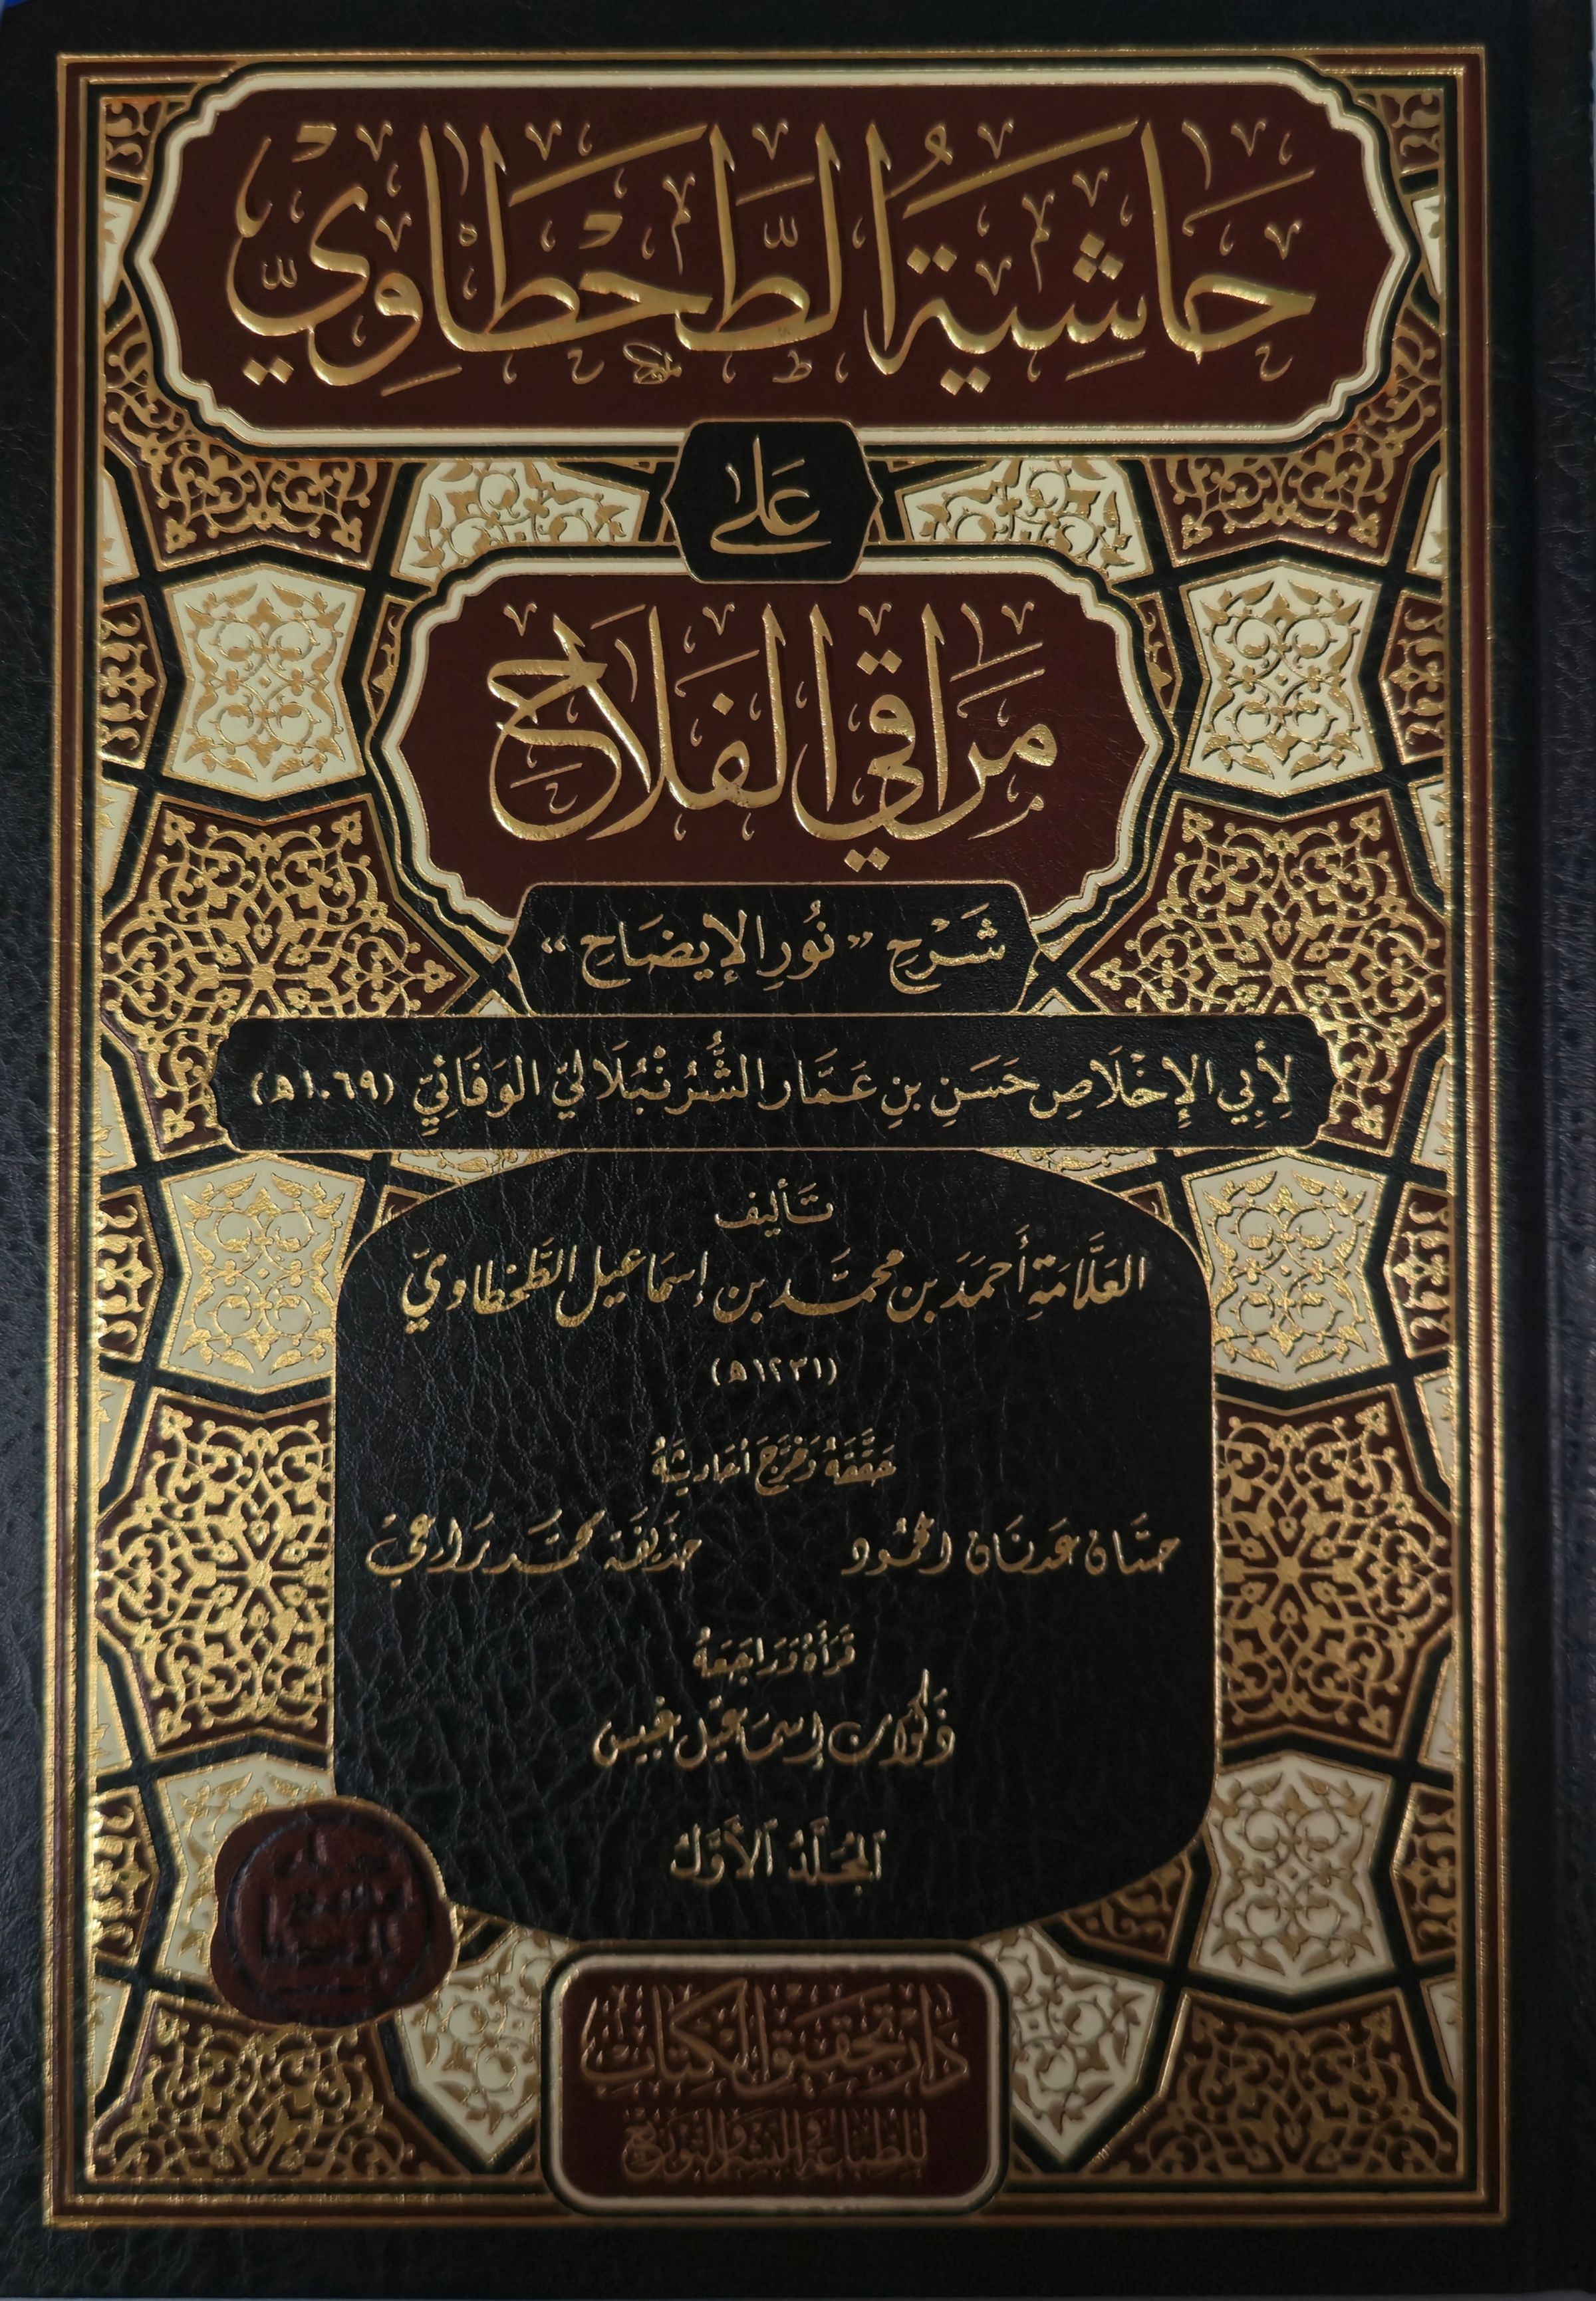 حَاشِيَةُ الطَّحْطَاوِيّ
عَلى
مَرَاقِي الفَلَاح
شَرْح "نُورِ الإِيضَاحِ"
لِأَبِي الإِخْلَاصِ حَسَنِ بنِ عَمَّار الشُّرُنْبُلَالِيّ الوَفَائِيِّ (١٠٦٩هـ)
تَأليف
العَلَّامَةِ أَحمَدَ بن محمَّد بن إسمَاعيل الطَّحطاويّ
(١٢٣١هـ)
حَقَّقَهُ وَخَرَّجَ أحَاديثَهُ
حسَّان عَدنَان المحمُود حذَيفَة محمَّد
قَرَأهُ وَرَاجَعَهُ
إسمَاعيل
المُجَلَّدُ الأَوَّلُ
دار تحقيق الكتاب
للطباعة والنشر والتوزيع